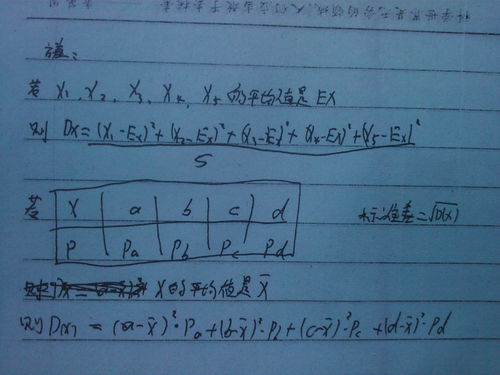 方差：
若 X₁、X₂、X₃、X₄、X₅ 的平均值是 EX
则 DX = (X₁-EX)²+(X₂-EX)²+(X₃-EX)²+(X₄-EX)²+(X₅-EX)²
5
若 X a b c d 标准差=√D(X)
P Pa Pb Pc Pd
X的平均值是 x̄
则 D(X) = (a-x̄)²·Pa+(b-x̄)²·Pb+(c-x̄)²·Pc+(d-x̄)²·Pd